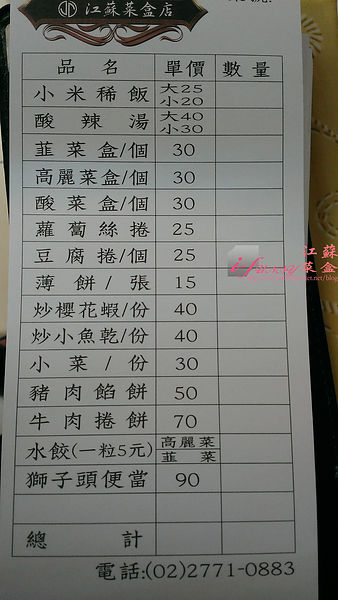 江蘇菜盒店
品名 單價 數量
小米稀飯 大25 小20
酸辣湯 大40 小30
韮菜盒/個 30
高麗菜盒/個 30
酸菜盒/個 30
蘿蔔絲捲 25
豆腐捲/個 25
薄餅/張 15
炒櫻花蝦/份 40
炒小魚乾/份 40
小菜/份 30
豬肉餡餅 50
牛肉捲餅 70
水餃(一粒5元) 高麗菜 韮菜
獅子頭便當 90
總計
電話:(02)2771-0883
江蘇
菜盒